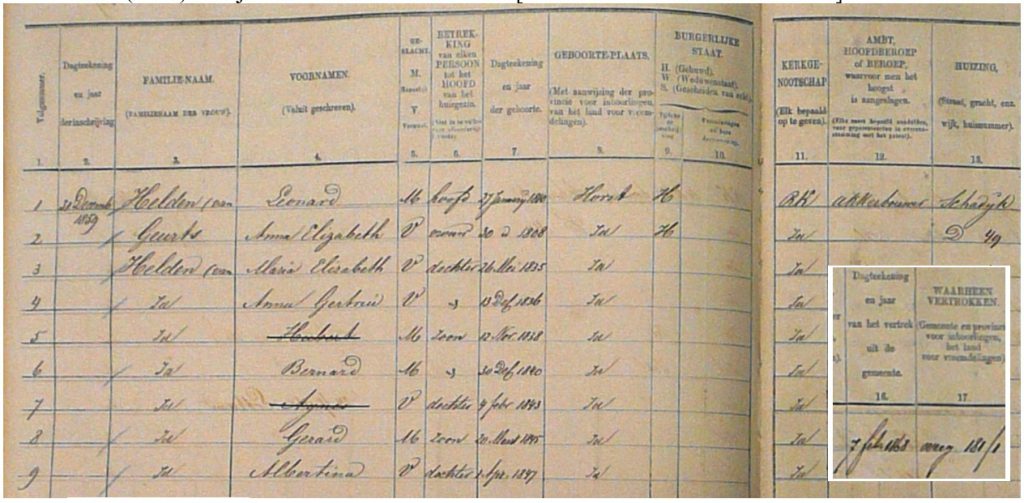 Volgnummer.
Dagteekening
en jaar
der inschrijving.
FAMILIE-NAAM.
(FAMILIENAAM DER VROUW).
VOORNAMEN.
(Voluit geschreven).
GE-
SLACHT.
M.
V
BETREK-
KING
van elken
PERSOON
tot het
HOOFD
van het
huisgezin.
Dagteekening
en jaar
der geboorte.
GEBOORTE-PLAATS.
(Met aanwijzing der pro-
vincie voor inboorlingen,
van het land voor vreem-
delingen).
BURGERLIJKE
STAAT.
H. (Gehuwd).
W. (Weduwenstaat).
S. (Gescheiden van echt).
KERKGE-
NOOTSCHAP
(Elk bepaald
op te geven).
AMBT,
HOOFDBEROEP
of BEROEP,
waarvoor men het
hoogst
is aangeslagen.
HUIZING,
(Straat, gracht, enz.
wijk, huisnummer).
1. 2. 3. 4. 5. 6. 7. 8. 9. 10. 11. 12. 13.
1 Helden (van Leonard M hoofd Horst H RK akkerbouwer Schadijk
1859
2 Geurts Anna Elizabeth V vrouw 30 d 1808 Id H Id D 49
3 Helden (van Maria Elizabeth V dochter 26 Mei 1835 Id Id
4 Id Anna Gertrui V " 13 Def 1836 Id Id
5 Id Hubert M Zoon 12 Nov. 1838 Id Id
6 Id Bernard M " 30 Def 1840 Id Id
7 Id Agnes V dochter 9 febr 1843 Id Id
8 Id Gerard M Zoon 20 Maart 1845 Id Id
9 Id Albertina V dochter 1 Apr. 1847 Id Id
Dagteekening
en jaar
van het vertrek
uit de
gemeente.
WAARHEEN
VERTROKKEN.
(Gemeente en provincie
voor inboorlingen,
het land
voor vreemdelingen)
16. 17.
7 febr 1868